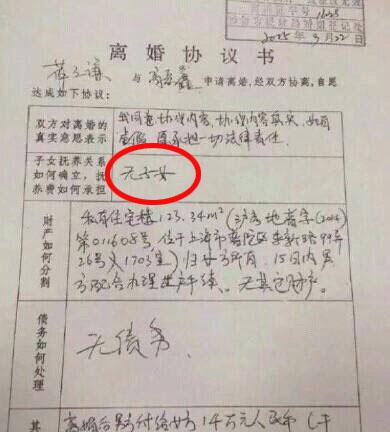 离婚协议书
与 申请离婚，经双方协商，自愿
达成如下协议：
双方对离婚的
真实意思表示
我同意协议内容，协议内容真实，如有
虚假，愿承担一切法律责任.
子女抚养关系
如何确立，抚
养费如何承担
无子女
财产如何分割
私有住宅楼123.34m²（沪房地普字(2014)
第011608号，位于上海市普陀区 路99弄
26号 1703室）归女方所有，15日内男
方配合办理过户手续。无其它财产。
债务如何处理
无债务.
其
离婚后男方付给女方14万元人民币